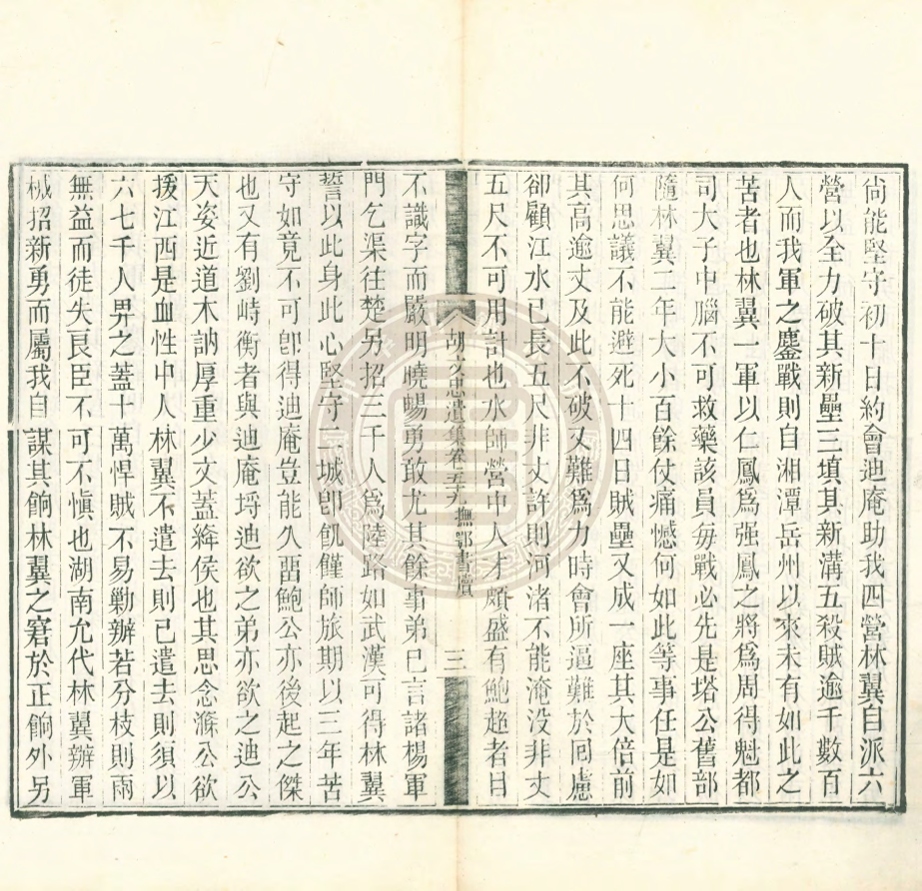 尙能堅守初十日約會迪庵助我四營林翼自派六
營以全力破其新壘三塡其新溝五殺賊逾千數百
人而我軍之鏖戰則自湘潭岳州以來未有如此之
苦者也林翼一軍以仁鳳爲强鳳之將爲周得魁都
司大子中腦不可救藥該員每戰必先是塔公舊部
隨林翼二年大小百餘仗痛憾何如此等事任是如
何思議不能避死十四日賊壘又成一座其大倍前
其高逾丈及此不破又難爲力時會所逼難於囘慮
卻顧江水已長五尺非丈許則河渚不能淹没非丈
五尺不可用計也水師營中人才頗盛有鮑超者目
胡文忠遺集卷五十九 撫鄂書牘 三
不識字而嚴明曉暢勇敢尤其餘事弟已言諸楊軍
門乞渠往楚另招三千人爲陸路如武漢可得林翼
誓以此身此心堅守二城卽飢僅師旅期以三年苦
守如竟不可卽得迪庵豈能久畱鮑公亦後起之傑
也又有劉峙衡者與迪庵埓迪欲之弟亦欲之迪公
天姿近道木訥厚重少文蓋絳侯也其思念滌公欲
援江西是血性中人林翼不遣去則已遣去則須以
六七千人畀之蓋十萬悍賊不易勦辦若分枝則兩
無益而徒失良臣不可不愼也湖南允代林翼辦軍
械招新勇而屬我自謀其餉林翼之窘於正餉外另